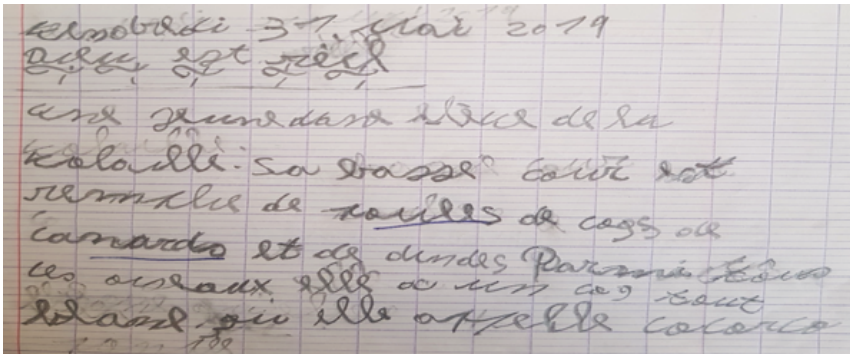 vendredi 31 Mai 2019
Dieu est réel
une jeune dame élève de la
volaille: sa basse cour est
remplie de poules de coqs de
canards et de dindes Parmi tous
ces oiseaux elle a un coq tout
blanc qu elle appelle cocorco